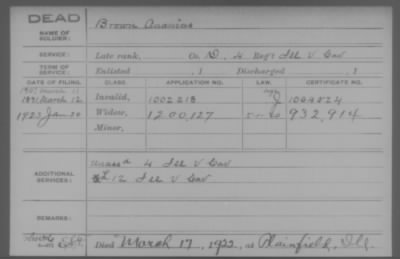 DEAD
NAME OF SOLDIER: Brown Ananias
SERVICE: Late rank, Co. D, 4 Reg't Ill V Cav
TERM OF SERVICE: Enlisted , 1 Discharged , 1
DATE OF FILING. CLASS. APPLICATION NO. LAW. CERTIFICATE NO.
1907 March 11
1891 March 12 Invalid, 1002218 J 1064824
1922 Jan 20 Widow, 1200,127 932,914
Minor,
ADDITIONAL SERVICES: Unass'd 4 Ill V Cav
L 12 Ill V Cav
REMARKS:
Died March 17, 1922, at Plainfield, Ill